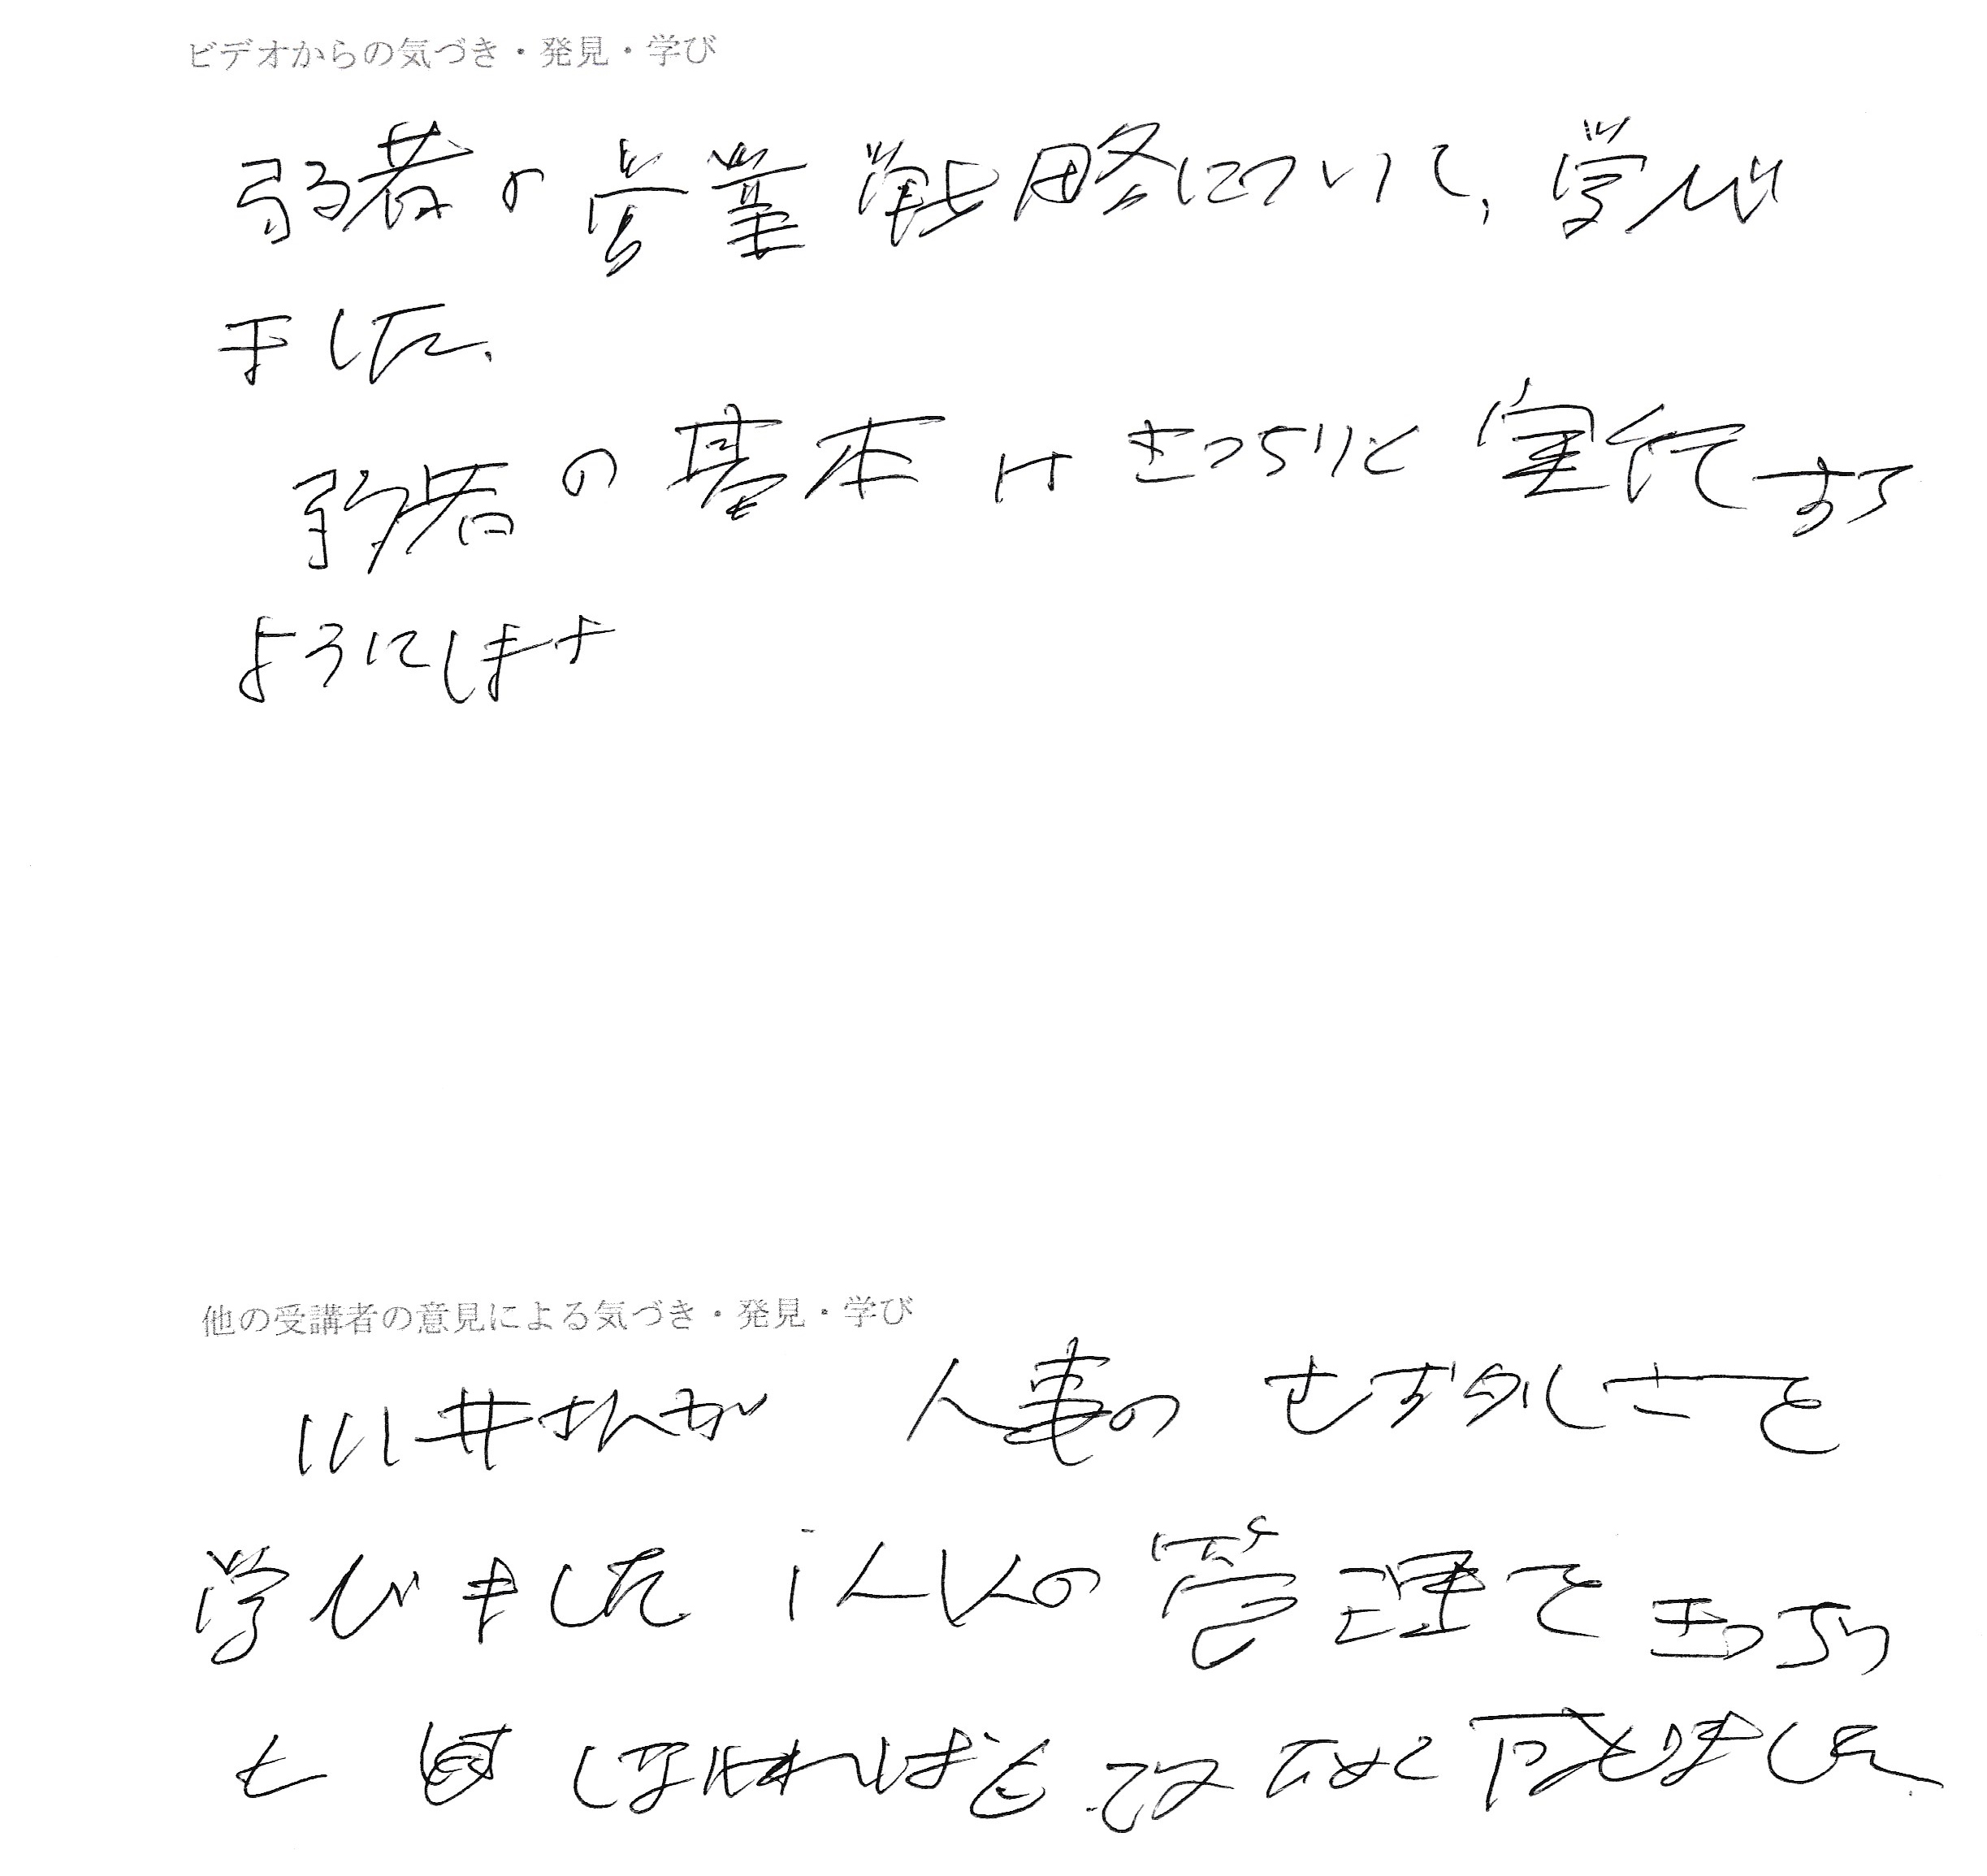 ビデオからの気づき・発見・学び
弱者の営業戦略について、学び
ました.
弱者の基本はきっちりと実行する
ようにします
他の受講者の意見による気づき・発見・学び
川井さんが 人事のむずかしさを
学びました 1人1人の管理をきっちり
しなければと改めて感じました.